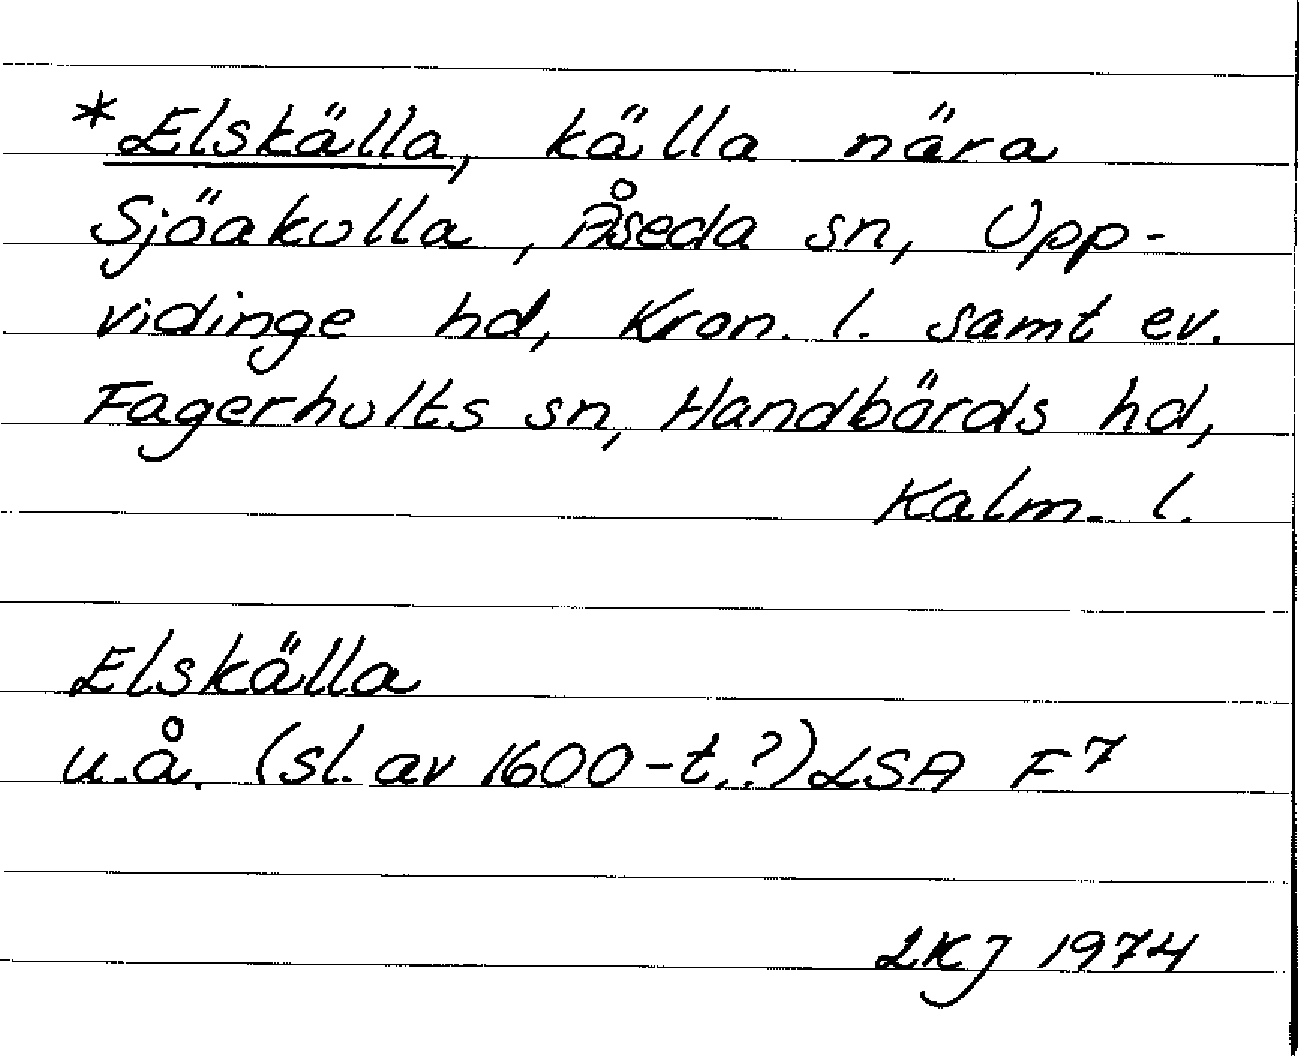 *Elskälla, källa nära
Sjöakulla, Åseda sn, Upp-
vidinge hd, Kron. l. samt ev.
Fagerhults sn, Handbörds hd,
Kalm. l.
Elskälla
u.å. (sl. av 1600-t.?) LSA F7
LKJ 1974